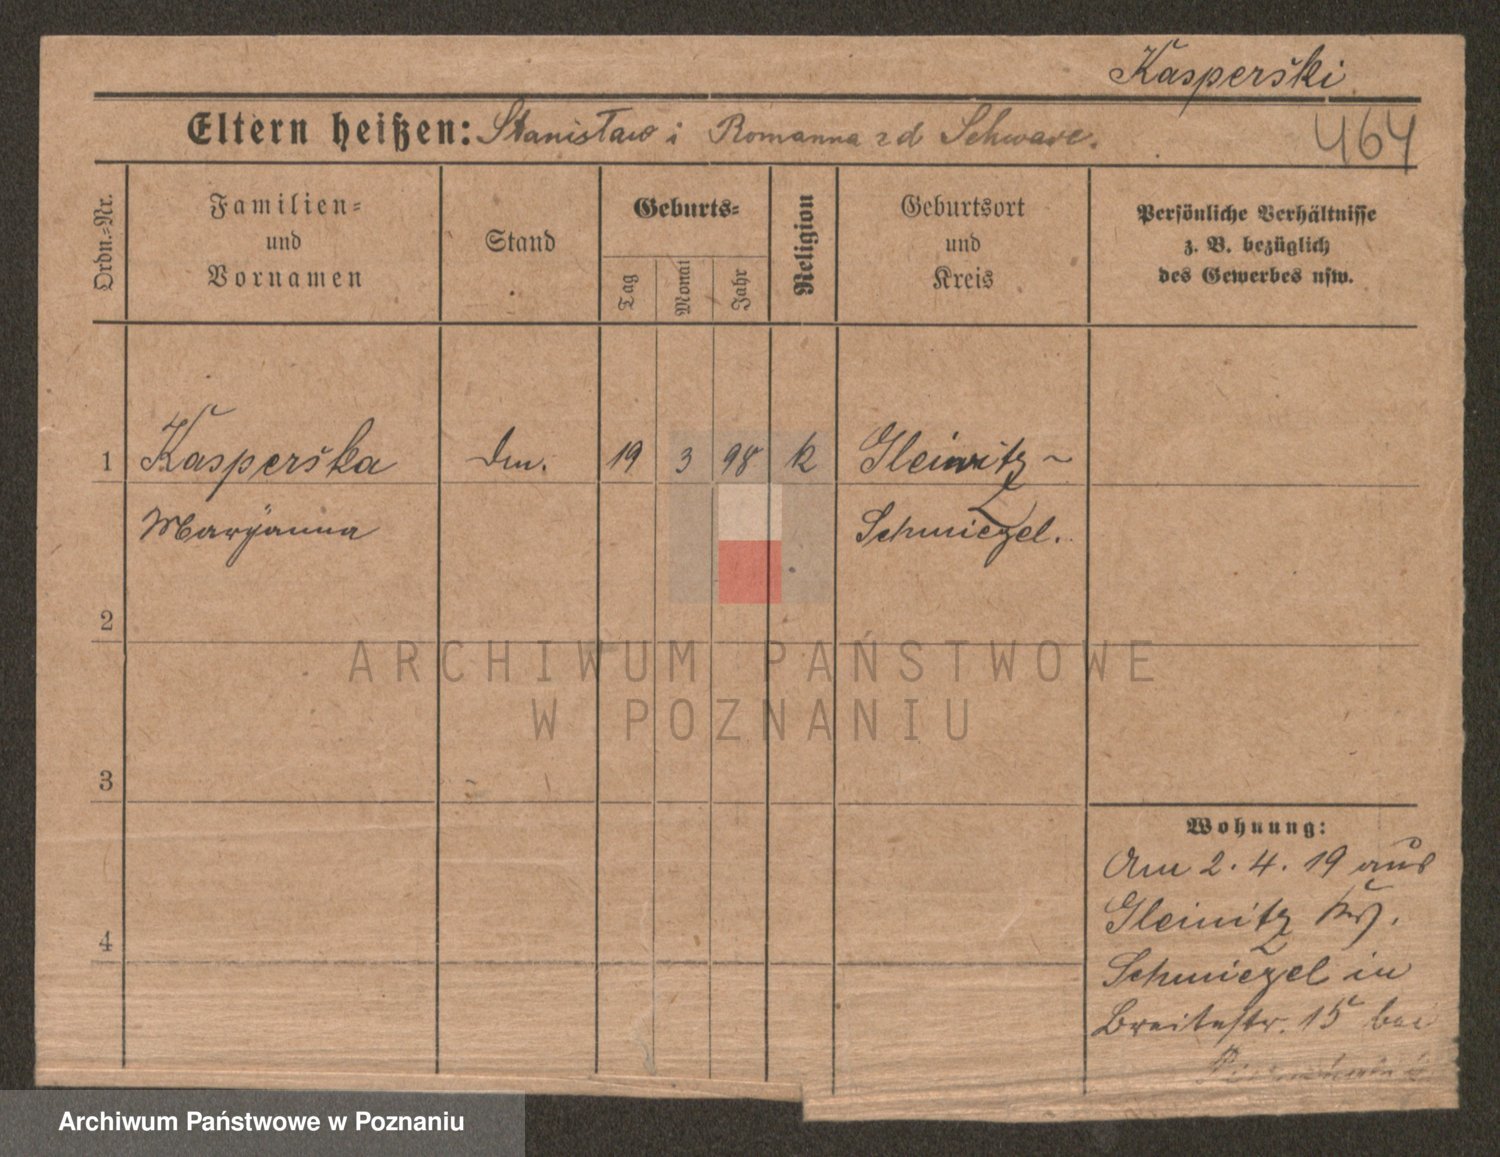 Kasperski
Eltern heißen: Stanisław i Romanna zd Schware.
464
Ordn.-Nr.
Familien-
und
Vornamen
Stand
Geburts-
Tag
Monat
Jahr
Religion
Geburtsort
und
Kreis
Persönliche Verhältnisse
z. B. bezüglich
des Gewerbes usw.
1 Kasperska 19 3 98 k Gleinitz
Maryanna Schmiegel.
2
3
4
Wohnung:
Am 2. 4. 19 aus
Gleinitz Krs.
Schmiegel in
Breitestr. 15 bei
ARCHIWUM PAŃSTWOWE
W POZNANIU
Archiwum Państwowe w Poznaniu